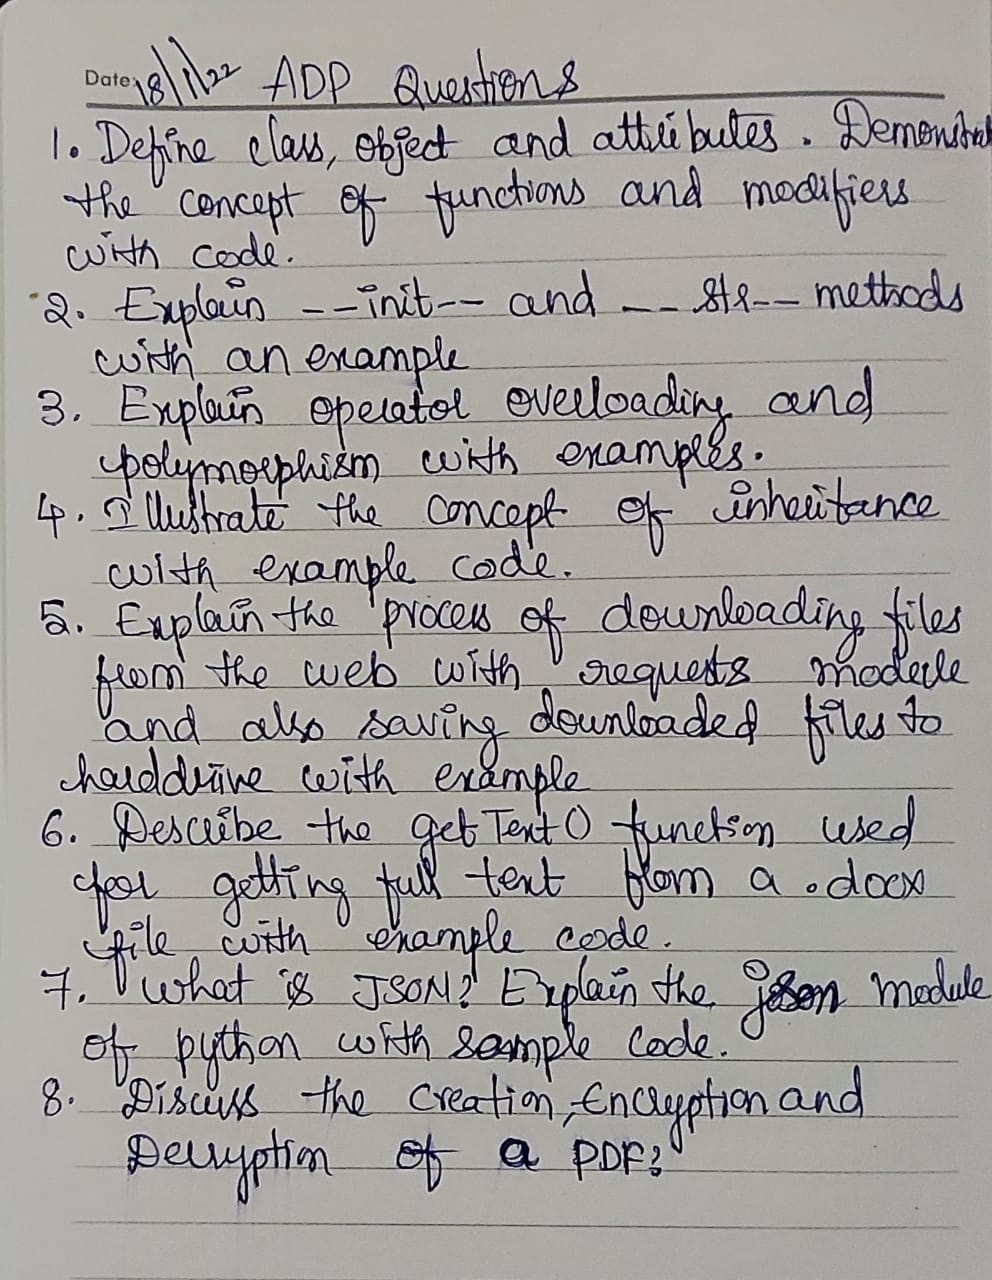 Date: 18/1/22 ADP Questions
1. Define class, object and attributes. Demonstrat
the concept of functions and modifiers
with code.
2. Explain --init-- and __ str-- methods
with an example
3. Explain operator overloading and
polymorphism with examples.
4. Illustrate the concept of inheritance
with example code.
5. Explain the process of downloading files
from the web with requests module
and also saving downloaded files to
harddrive with example
6. Describe the getText() function used
for getting full text from a .docx
file with example code.
7. What is JSON? Explain the json module
of python with sample code.
8. Discuss the Creation, Encryption and
Decryption of a PDF?